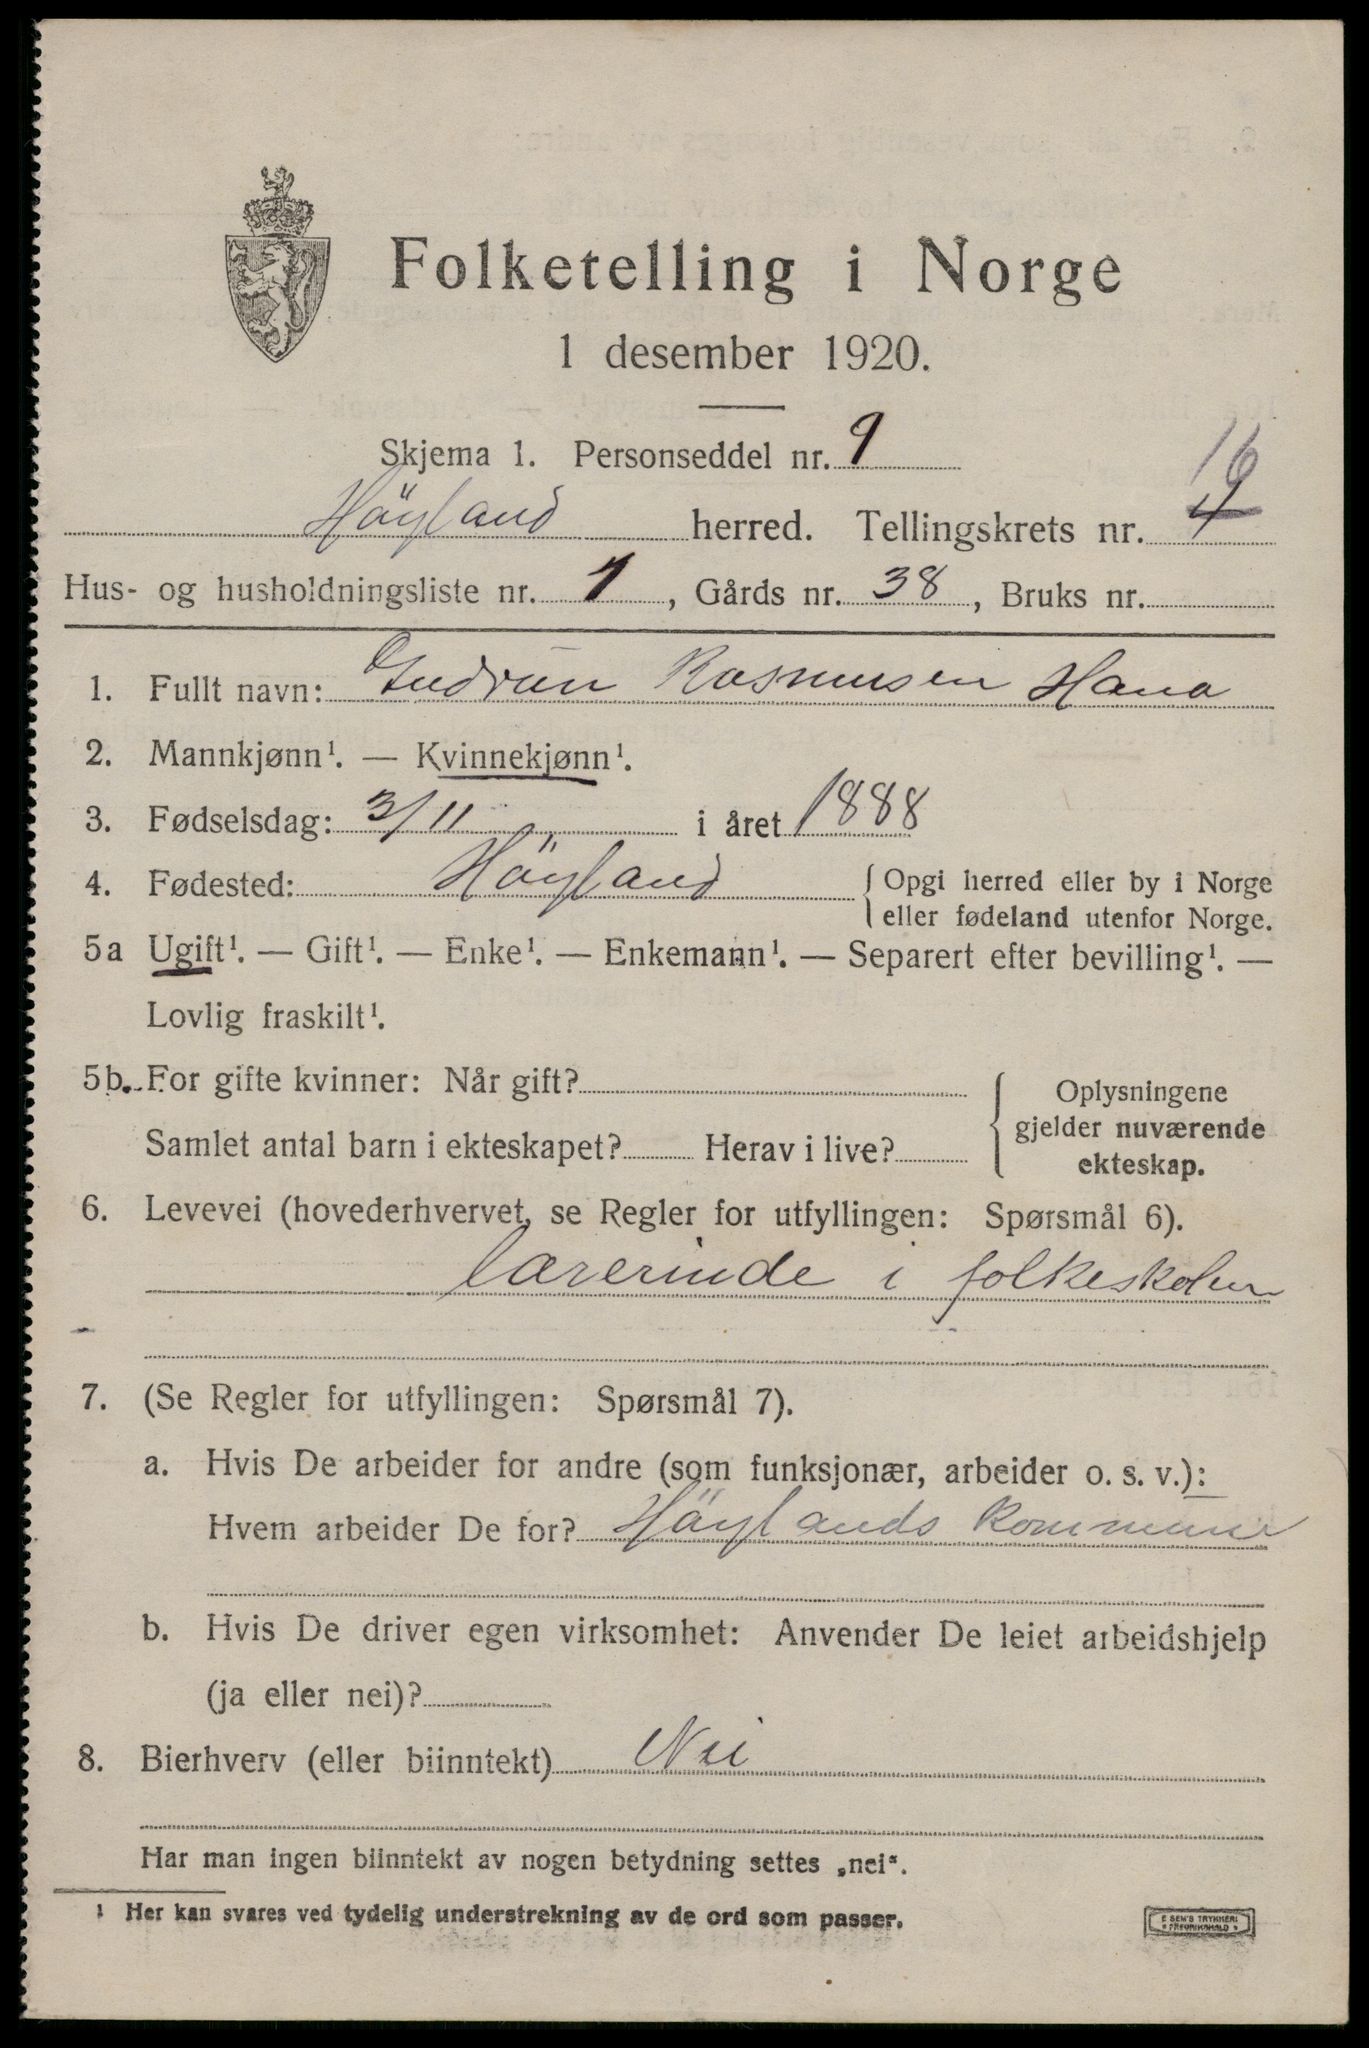 Folketelling i Norge
1 desember 1920.
Skjema 1. Personseddel nr. 9
16
Höyland herred. Tellingskrets nr. 4
Hus- og husholdningsliste nr. 1, Gårds nr. 38, Bruks nr.
1. Fullt navn: Gudrun Rasmusen Hana
2. Mannkjønn¹. — Kvinnekjønn¹.
3. Fødselsdag: 3/11 i året 1888
4. Fødested: Höyland { Opgi herred eller by i Norge
eller fødeland utenfor Norge.
5a Ugift¹. — Gift¹. — Enke¹. — Enkemann¹. — Separert efter bevilling¹. —
Lovlig fraskilt¹.
5b. For gifte kvinner: Når gift? Oplysningene
gjelder nuværende
Samlet antal barn i ekteskapet? Herav i live? ekteskap.
6. Levevei (hovederhvervet, se Regler for utfyllingen: Spørsmål 6).
lærerinde i folkeskolen
7. (Se Regler for utfyllingen: Spørsmål 7).
a. Hvis De arbeider for andre (som funksjonær, arbeider o. s. v.):
Hvem arbeider De for? Höylands kommune
b. Hvis De driver egen virksomhet: Anvender De leiet arbeidshjelp
(ja eller nei)?
8. Bierhverv (eller biinntekt) Nei
Har man ingen biinntekt av nogen betydning settes „nei“.
¹ Her kan svares ved tydelig understrekning av de ord som passer.
E SEM'S TRYKKERI
FREDRIKSHALD